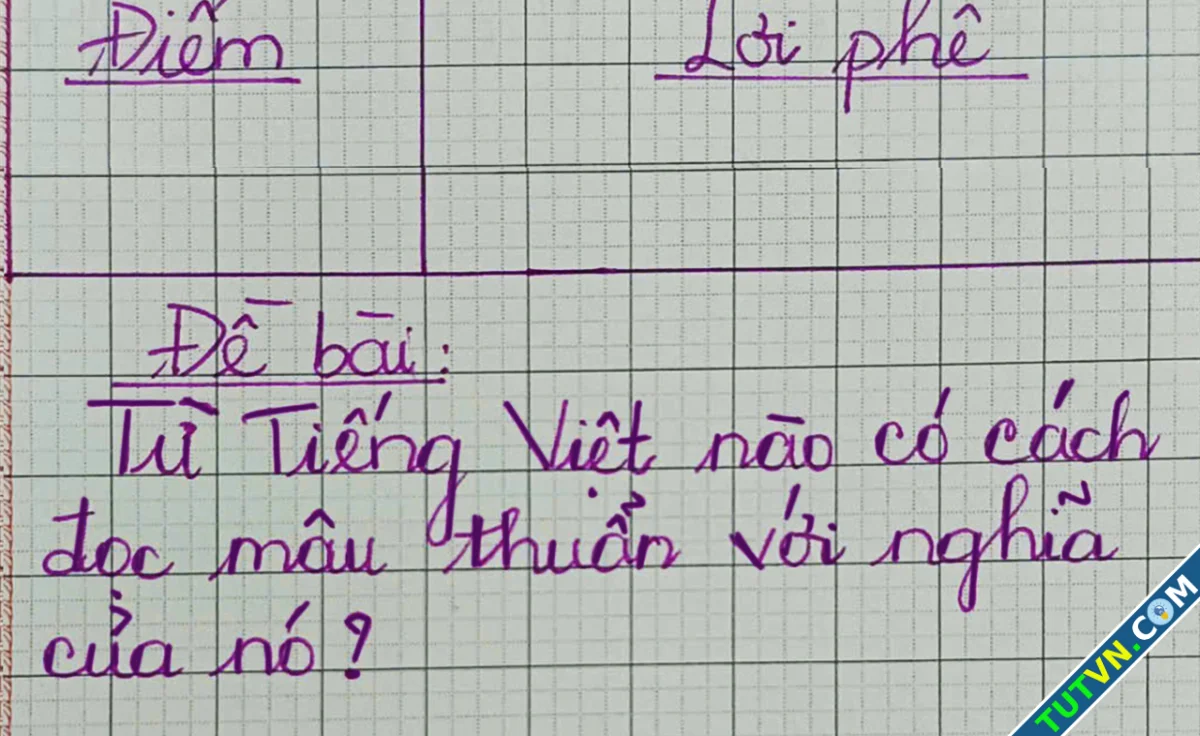 Điểm
Lời phê
Đề bài:
Từ Tiếng Việt nào có cách
đọc mâu thuẩn với nghĩa
của nó?
TUTVN.COM